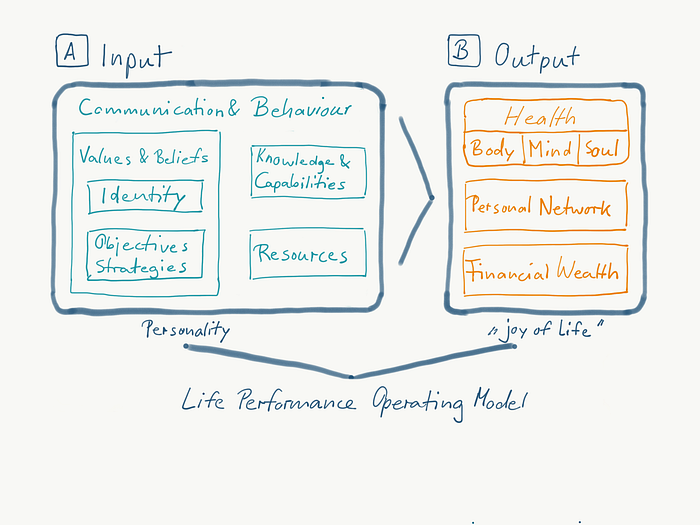 A Input
Communication & Behaviour
Values & Beliefs
Identity
Objectives
Strategies
Knowledge &
Capabilities
Resources
Personality
B Output
Health
Body Mind Soul
Personal Network
Financial Wealth
„joy of Life“
Life Performance Operating Model